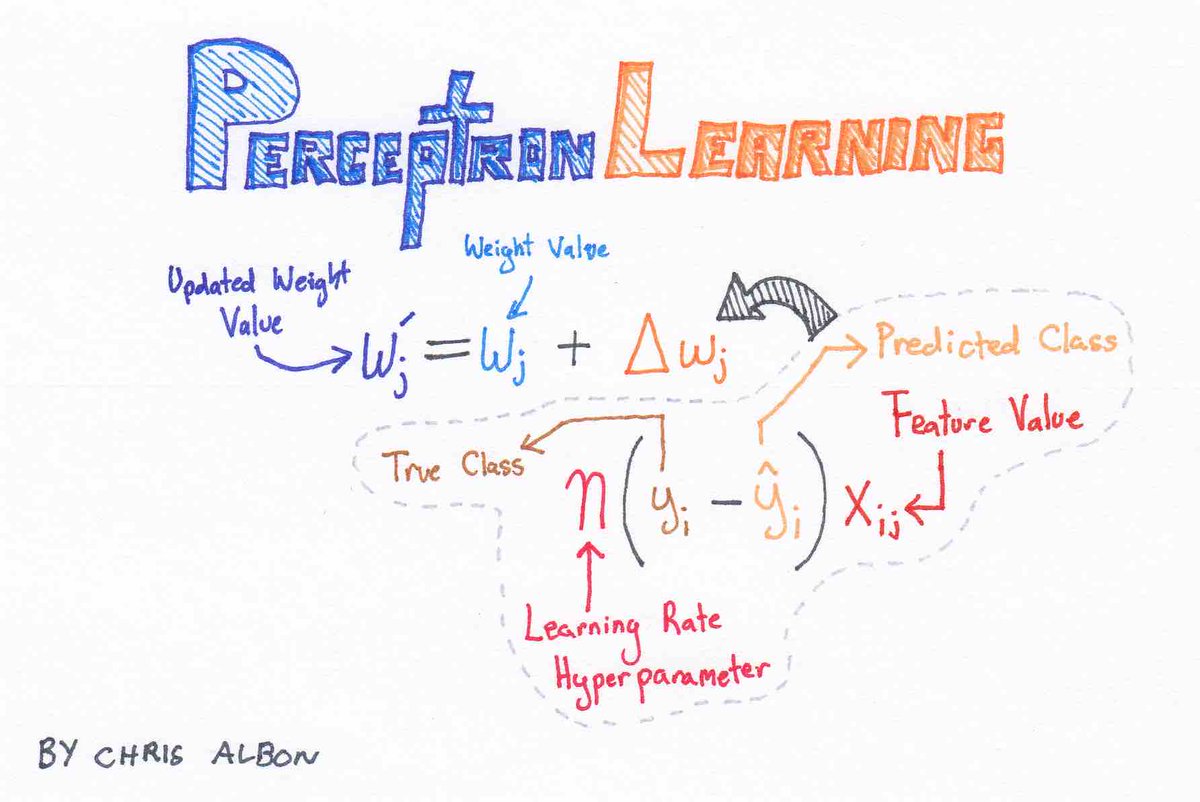 PERCEPTRON LEARNING
Weight Value
Updated Weight
Value
w′j = wj + Δwj
Predicted Class
Feature Value
True Class
η(yi − ŷi)xij
Learning Rate
Hyperparameter
BY CHRIS ALBON